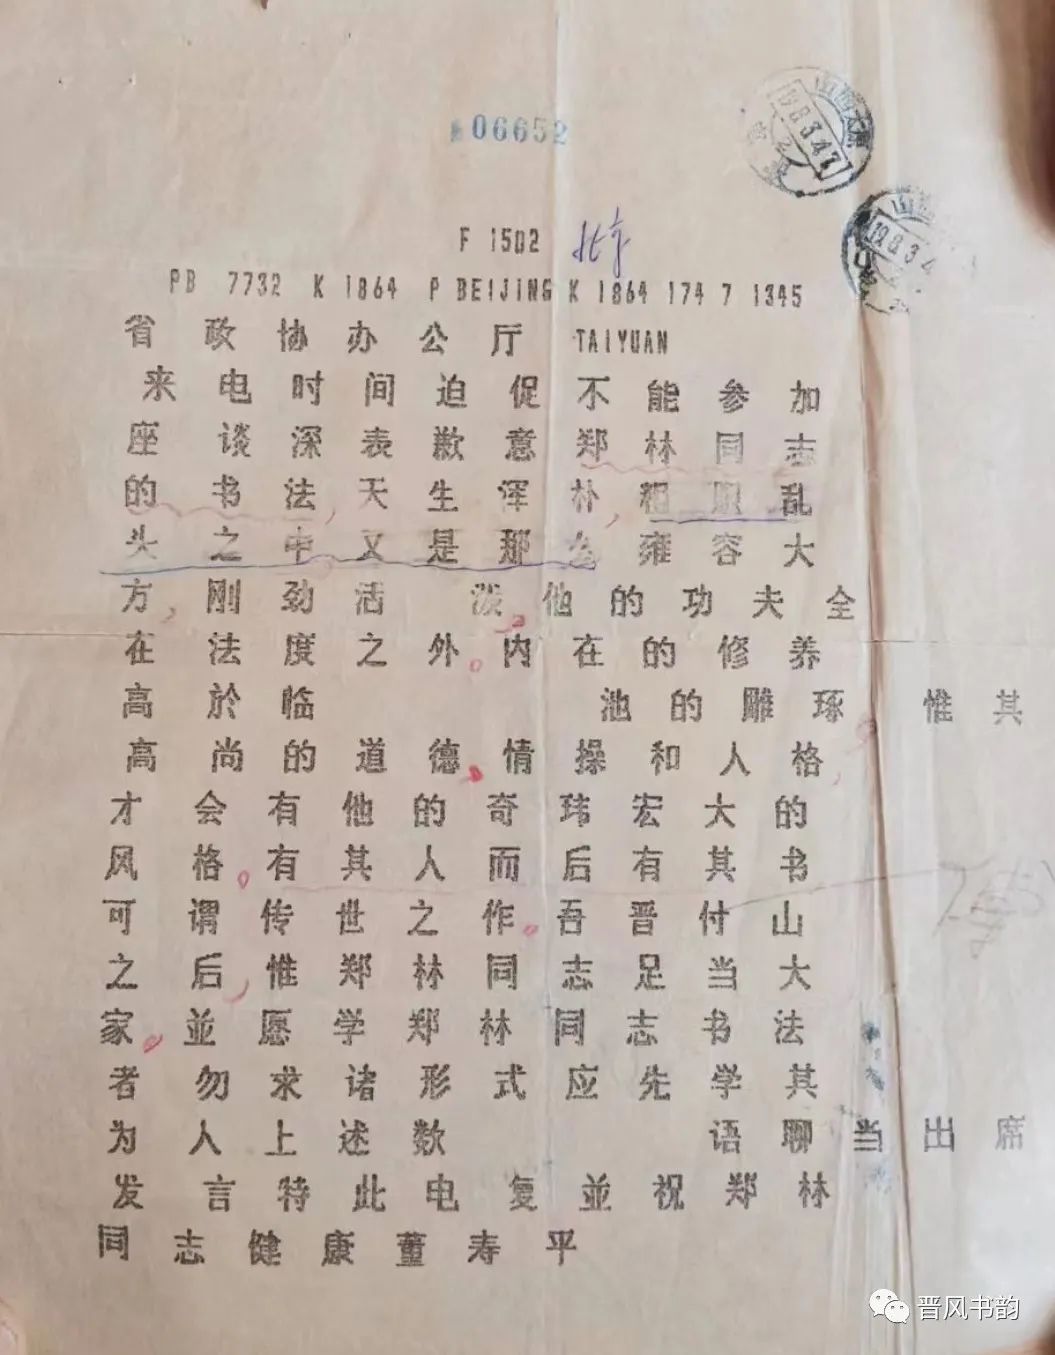 06652
山西太原
1983.4.7
山西
1983.4
F 1502 北京
PB 7732 K 1864 P BEIJING K 1864 174 7 1345
省政协办公厅 TAIYUAN
来电时间迫促不能参加
座谈深表歉意郑林同志
的书法,天生浑朴,粗服乱
头之中又是那么雍容大
方,刚劲活泼。他的功夫全
在法度之外。内在的修养
高於临池的雕琢。惟其
高尚的道德、情操和人格,
才会有他的奇玮宏大的
风格。有其人而后有其书
可谓传世之作。吾晋付山
之后,惟郑林同志足当大
家。並愿学郑林同志书法
者勿求诸形式应先学其
为人上述数语聊当出席
发言特此电复並祝郑林
同志健康董寿平
晋风书韵